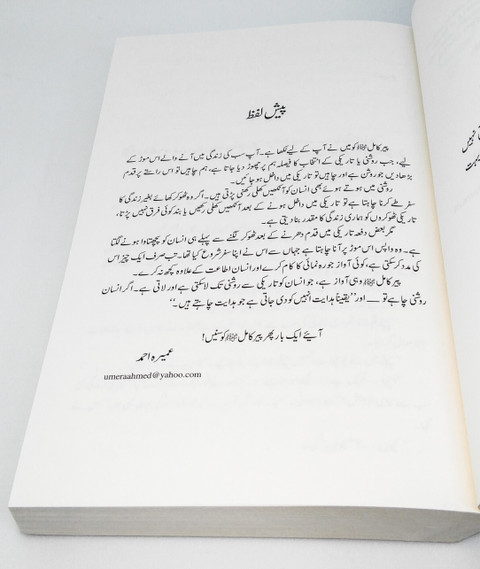 پیش لفظ
پیر کامل ﷺ کو میں نے آپ کے لیے لکھا ہے۔ آپ سب کی زندگی میں آنے والے اس موڑ کے
لیے، جب روشنی یا تاریکی کے انتخاب کا فیصلہ ہم پر چھوڑ دیا جاتا ہے، ہم چاہیں تو اس راستے پر قدم
بڑھا دیں جو روشن ہے اور چاہیں تو تاریکی میں داخل ہو جائیں۔
روشنی میں ہوتے ہوئے بھی انسان کو آنکھیں کھلی رکھنی پڑتی ہیں۔ اگر وہ ٹھوکر کھائے بغیر زندگی کا
سفر طے کرنا چاہتا ہے تو تاریکی میں داخل ہونے کے بعد آنکھیں کھلی رکھیں یا بند کوئی فرق نہیں پڑتا،
تاریکی ٹھوکروں کو ہماری زندگی کا مقدر بنا دیتی ہے۔
مگر بعض دفعہ تاریکی میں قدم دھرنے کے بعد ٹھوکر لگنے سے پہلے ہی انسان کو پچھتاوا ہونے لگتا
ہے۔ وہ واپس اس موڑ پر آنا چاہتا ہے جہاں سے اس نے اپنا سفر شروع کیا تھا۔ تب صرف ایک چیز اس
کی مدد کر سکتی ہے، کوئی آواز جو رہنمائی کا کام کرے اور انسان اطاعت کے علاوہ کچھ نہ کرے۔
پیر کامل ﷺ وہی آواز ہے، جو انسان کو تاریکی سے روشنی تک لا سکتی ہے اور لاتی ہے۔ اگر انسان
روشنی چاہے تو ــــ اور "یقیناً ہدایت انہیں کو دی جاتی ہے جو ہدایت چاہتے ہیں۔"
آیئے ایک بار پھر پیر کامل ﷺ کو سنیں!
عمیرہ احمد
umeraahmed@yahoo.com
نہیں